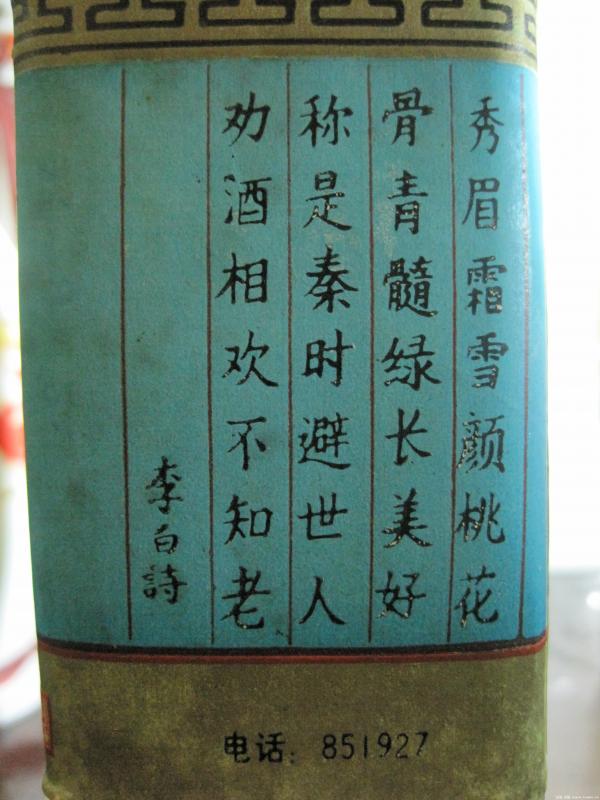 秀眉霜雪颜桃花
骨青髓绿长美好
称是秦时避世人
劝酒相欢不知老
李白詩
电话:851927